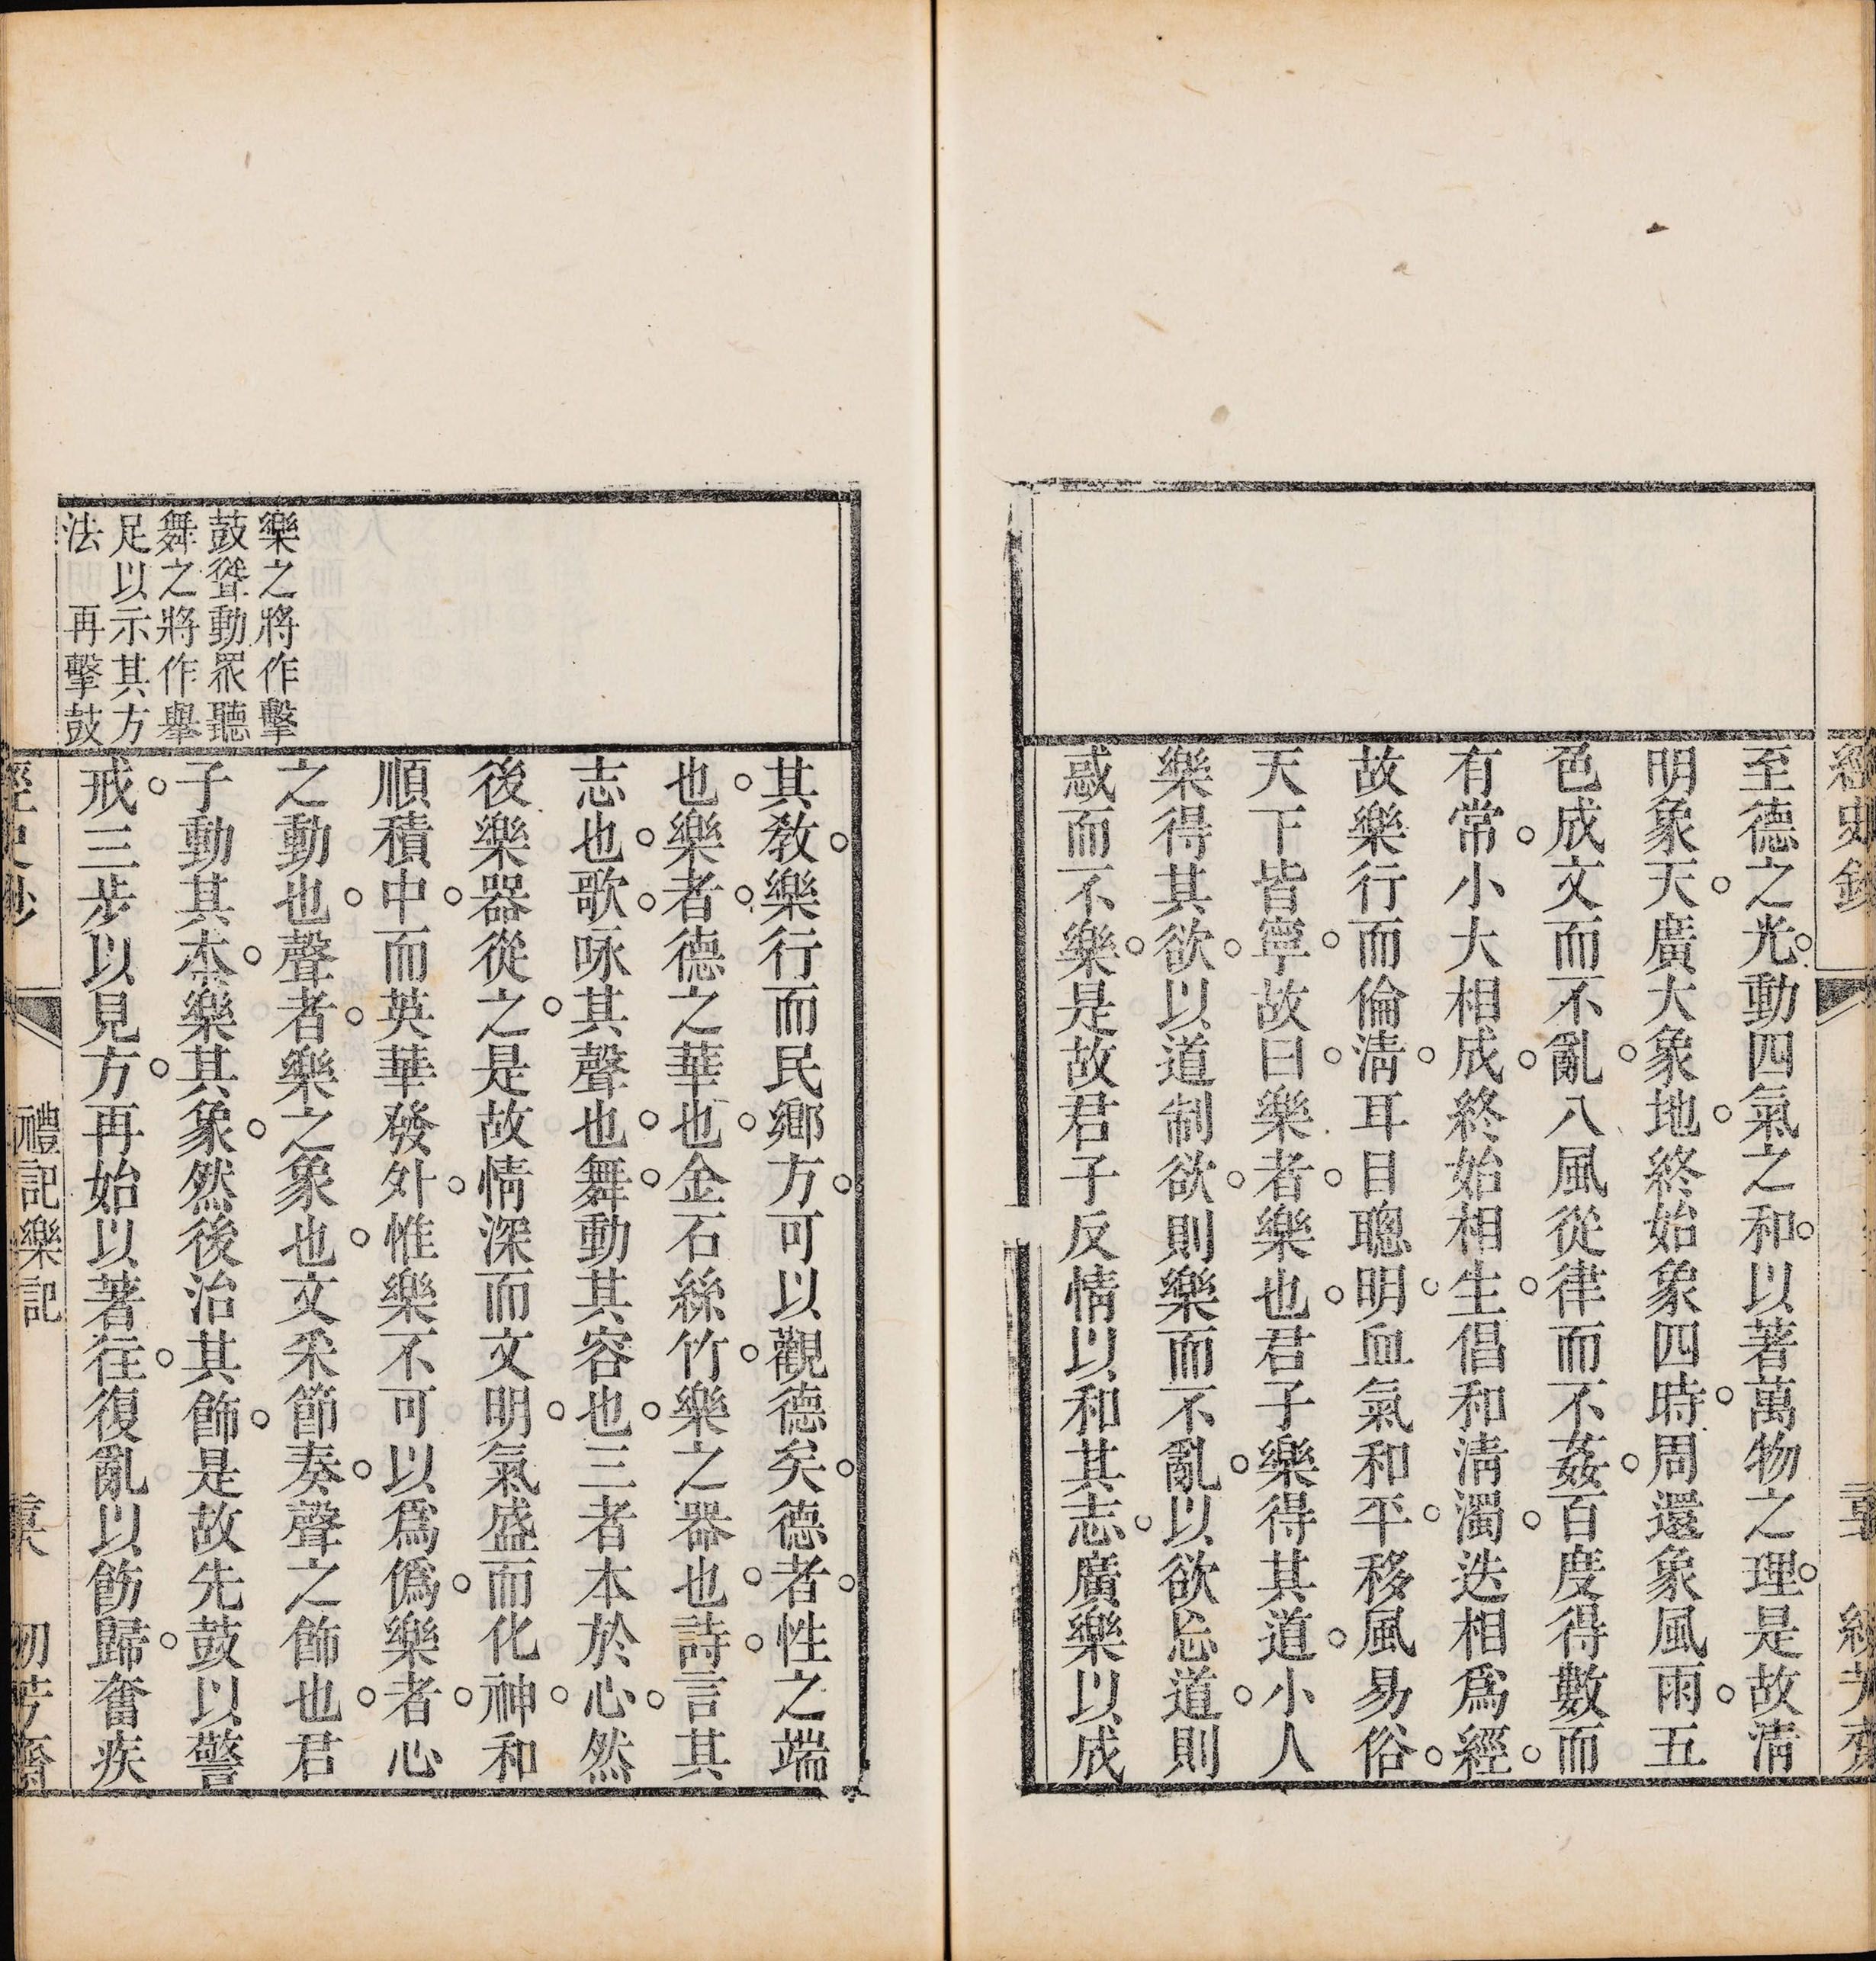 至德之光。動四氣之和。以著萬物之理。是故清
明象天。廣大象地。終始象四時。周還象風雨。五
色成文而不亂。八風從律而不姦。百度得數而
有常。小大相成。終始相生。倡和清濁。迭相爲經。
故樂行而倫清。耳目聰明。血氣和平。移風易俗。
天下皆寧。故曰。樂者。樂也。君子樂得其道。小人
樂得其欲。以道制欲。則樂而不亂。以欲忘道。則
惑而不樂。是故君子反情以和其志。廣樂以成
其教。樂行而民鄉方。可以觀德矣。德者。性之端
也。樂者。德之華也。金石絲竹。樂之器也。詩。言其
志也。歌。咏其聲也。舞。動其容也。三者本於心。然
後樂器從之。是故情深而文明。氣盛而化神。和
順積中。而英華發外。惟樂不可以爲僞。樂者。心
之動也。聲者。樂之象也。文采節奏。聲之飾也。君
子動其本。樂其象。然後治其飾。是故先鼓以警
戒。三步以見方。再始以著往。復亂以飭歸。奮疾
樂之將作擊
鼓聳動衆聽
舞之將作舉
足以示其方
法 再擊鼓
禮記樂記